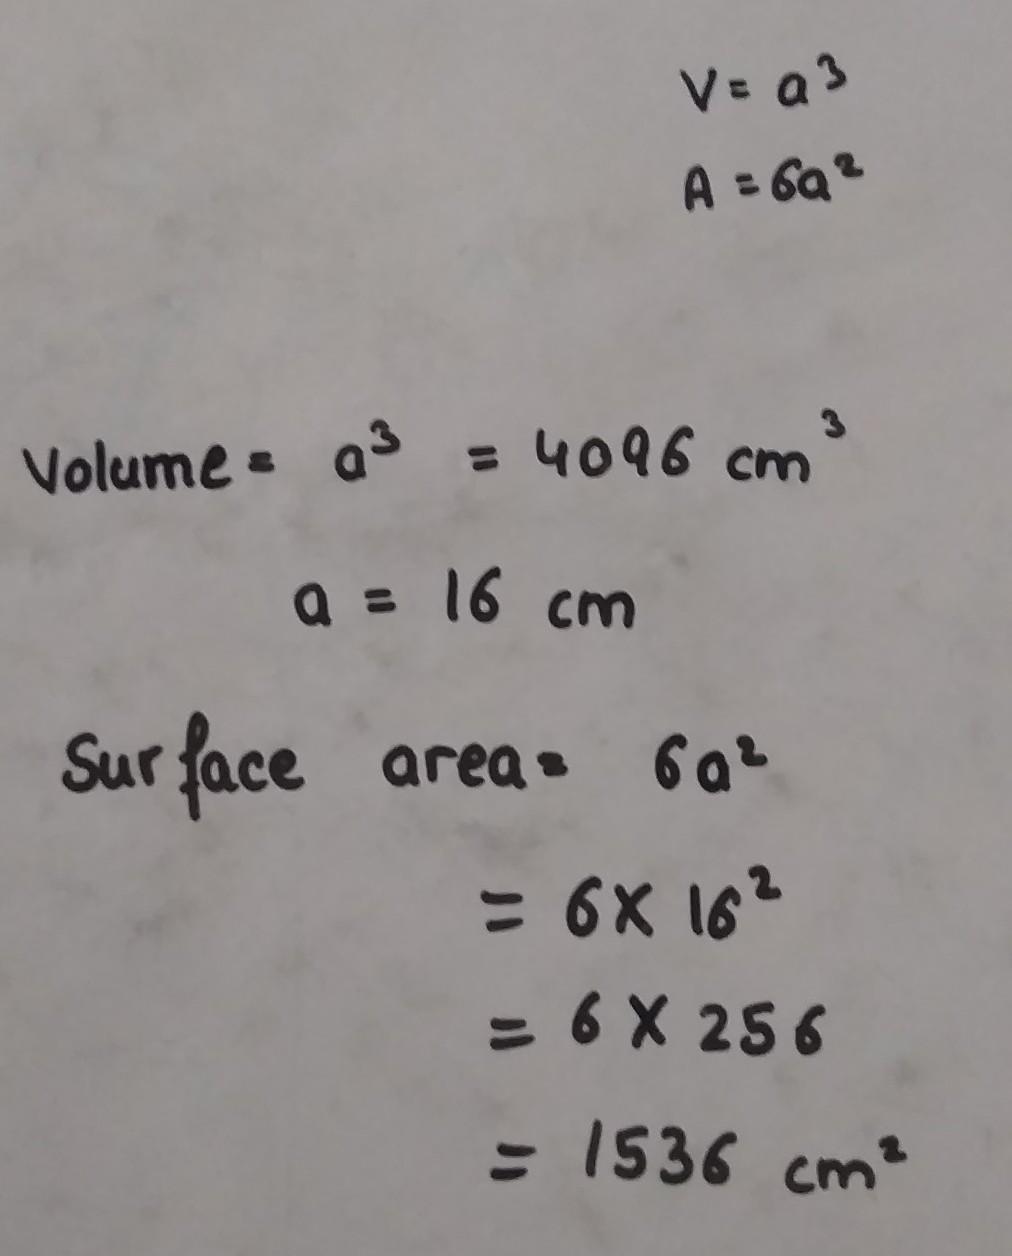 V = a³
A = 6a²
Volume = a³ = 4096 cm³
a = 16 cm
Surface area = 6a²
= 6 X 16²
= 6 X 256
= 1536 cm²